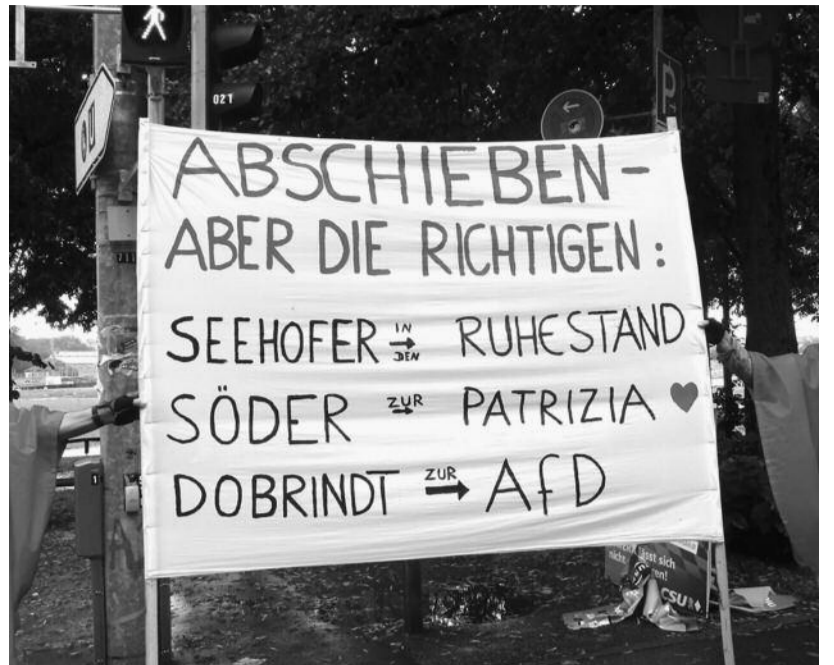 021
P
ABSCHIEBEN -
ABER DIE RICHTIGEN :
SEEHOFER IN DEN → RUHESTAND
SÖDER ZUR → PATRIZIA ♥
DOBRINDT ZUR → AfD
lässt sich
nicht
CSU